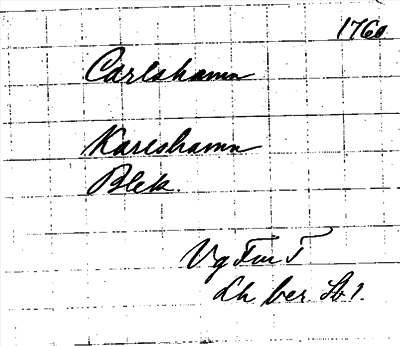 1760
Carlshamn
Karlshamn
Blek.
Vg Fm T
Lh ber. Sb 1.